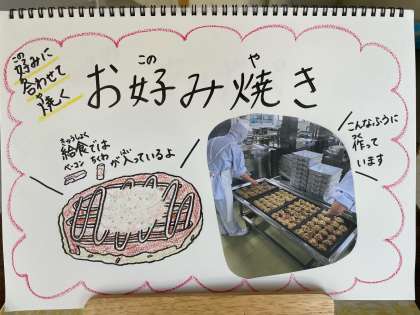 この
好みに
合わせて
焼く
この や
お好み焼き
きゅうしょく
給食では
ベーコン ちくわ が入っているよ
はい
こんなふうに
つく
作って
います